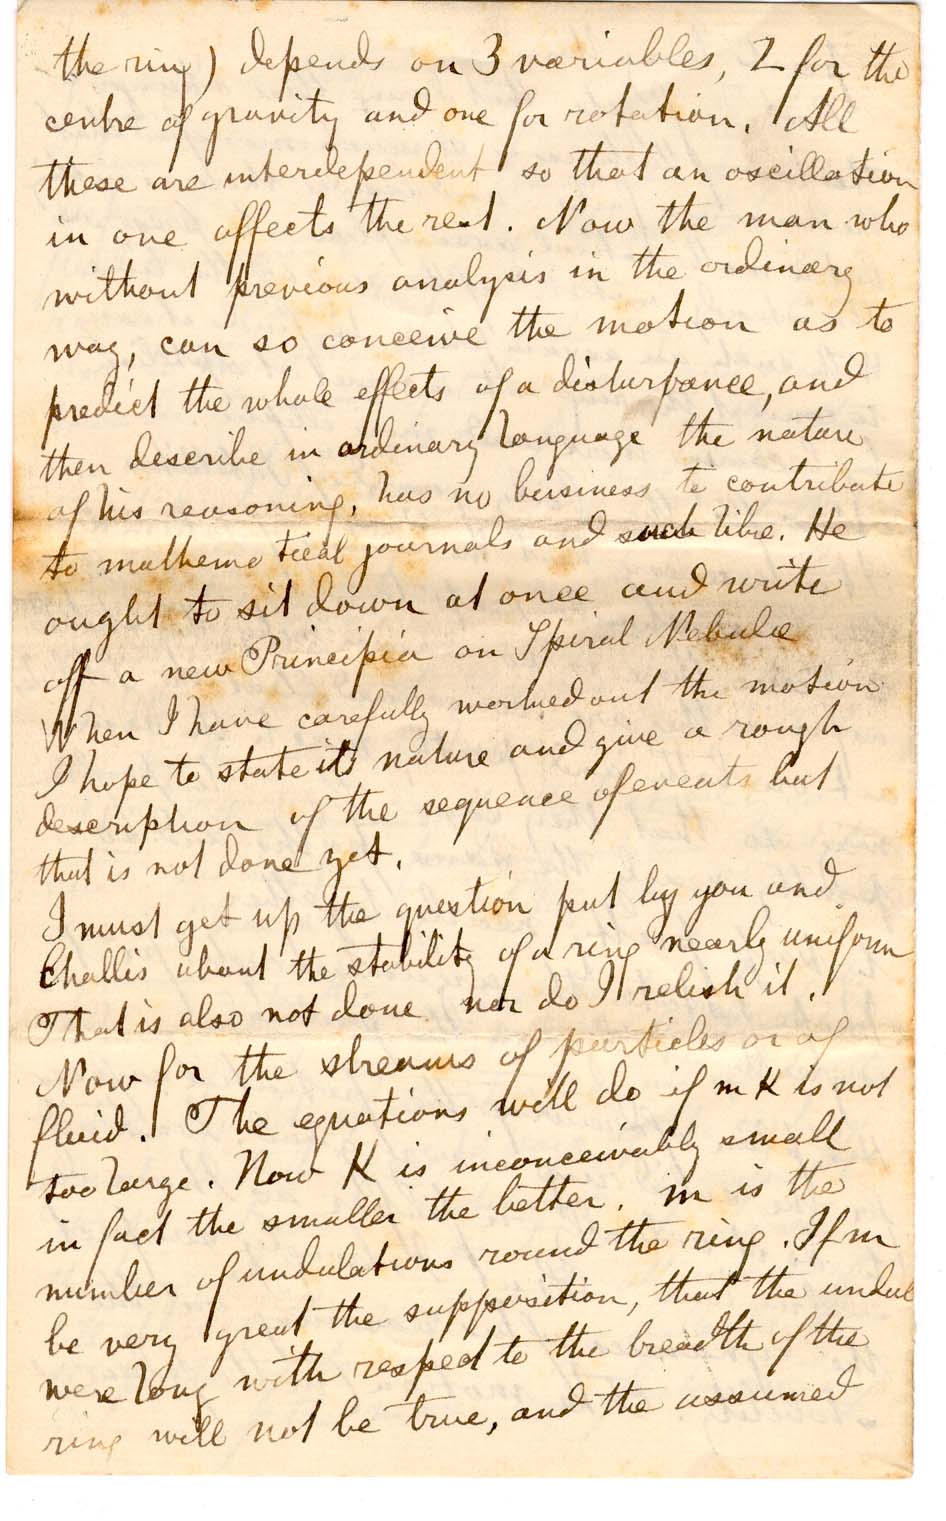 the ring) depends on 3 variables, 2 for the
centre of gravity and one for rotation. All
these are interdependent so that an oscillation
in one affects the rest. Now the man who
without previous analysis in the ordinary
way, can so conceive the motion as to
predict the whole effects of a disturbance, and
then describe in ordinary language the nature
of his reasoning, has no business to contribute
to mathematical journals and such like. He
ought to sit down at once and write
off a new Principia on Spiral Nebulæ
When I have carefully worked out the motion
I hope to state its nature and give a rough
description of the sequence of events but
that is not done yet.
I must get up the question put by you and
Challis about the stability of a ring nearly uniform
That is also not done nor do I relish it.
Now for the streams of particles or of
fluid. The equations will do if m K is not
too large. Now K is inconceivably small
in fact the smaller the better. m is the
number of undulations round the ring. If m
be very great the supposition, that the undul
were long with respect to the breadth of the
ring will not be true, and the assumed